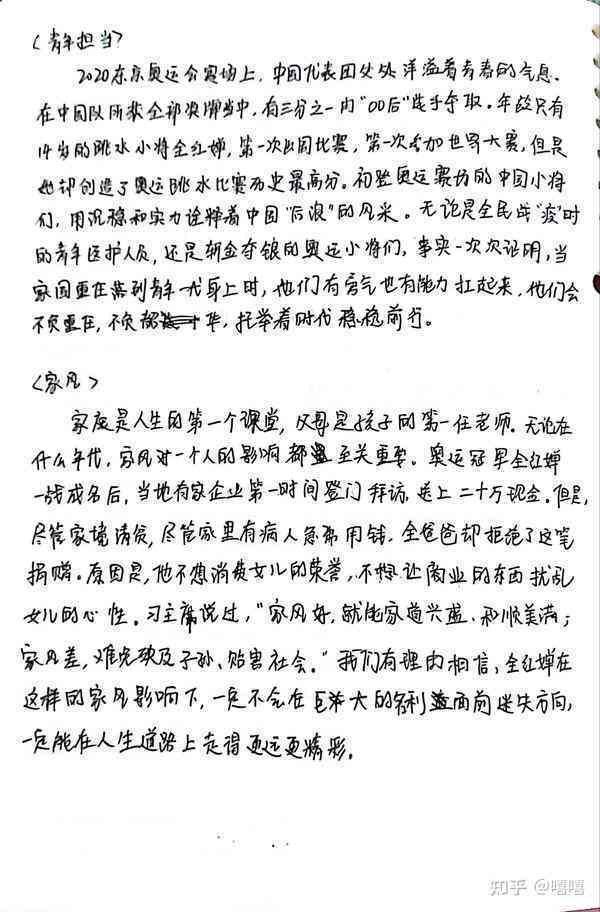 〈青年担当〉
2020东京奥运会赛场上，中国代表团处处洋溢着青春的气息．
在中国队所获全部奖牌当中，有三分之一由"00后"选手夺取．年龄只有
14岁的跳水小将全红婵，第一次出国比赛，第一次参加世界大赛，但是
她却创造了奥运跳水比赛历史最高分。初登奥运赛场的中国小将
们，用沉稳和实力诠释着中国"后浪"的风采．无论是全民战"疫"时
的青年医护人员，还是斩金夺银的奥运小将们，事实一次次证明，当
家国重任落到青年一代身上时，他们有勇气也有能力扛起来，他们会
不负重任，不负韶华，托举着时代稳稳前行。
〈家风〉
家庭是人生的第一个课堂，父母是孩子的第一任老师．无论在
什么年代，家风对一个人的影响都至关重要．奥运冠军全红婵
一战成名后，当地有家企业第一时间登门拜访，送上二十万现金．但是，
尽管家境清贫，尽管家里有病人急需用钱，全爸爸却拒绝了这笔
捐赠．原因是，他不想消费女儿的荣誉，不想让商业的东西扰乱
女儿的心性．习主席说过，"家风好，就能家道兴盛、和顺美满；
家风差，难免殃及子孙、贻害社会．"我们有理由相信，全红婵在
这样的家风影响下，一定不会在巨大的名利面前迷失方向，
一定能在人生道路上走得更远更精彩．
知乎 @嘻嘻